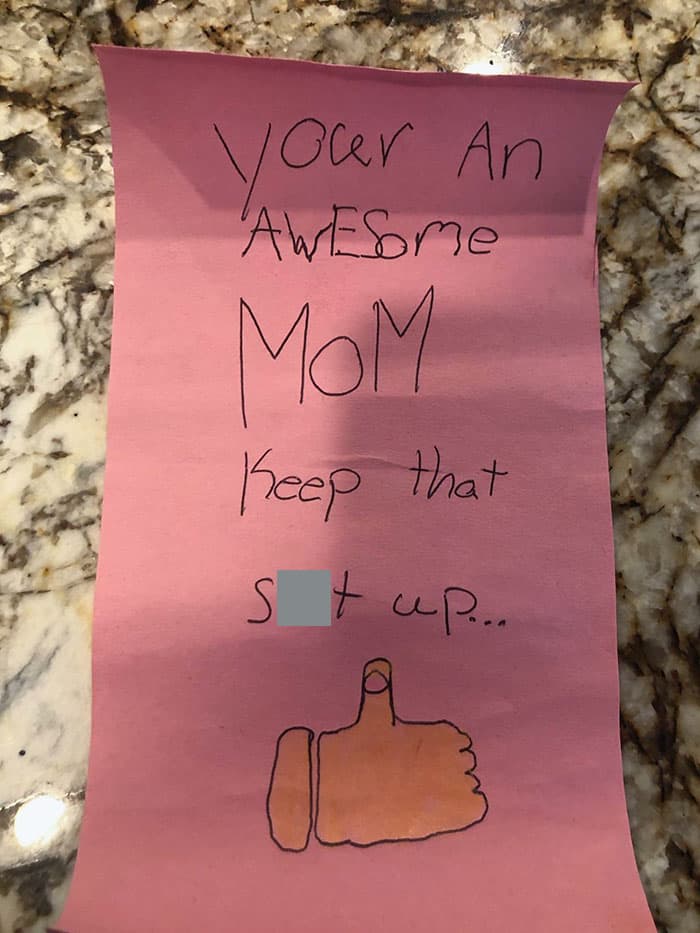 your An
AWESome
MoM
Keep that
s t up...